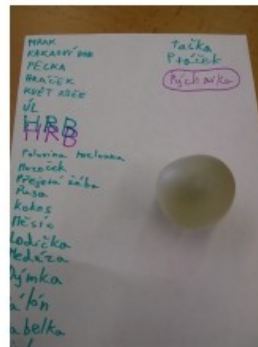 MRAK
KAKAOVÝ BOB
PECKA
HRÁČEK
KVĚT RŮŽE
ÚL
HRB
HRB
Polovina tuclouna
Mozoček
Přejetá žába
Pusa
kokos
Měsíc
Lodička
Medúza
Dýmka
alón
abelka
Taška
Ptáček
Pýchavka